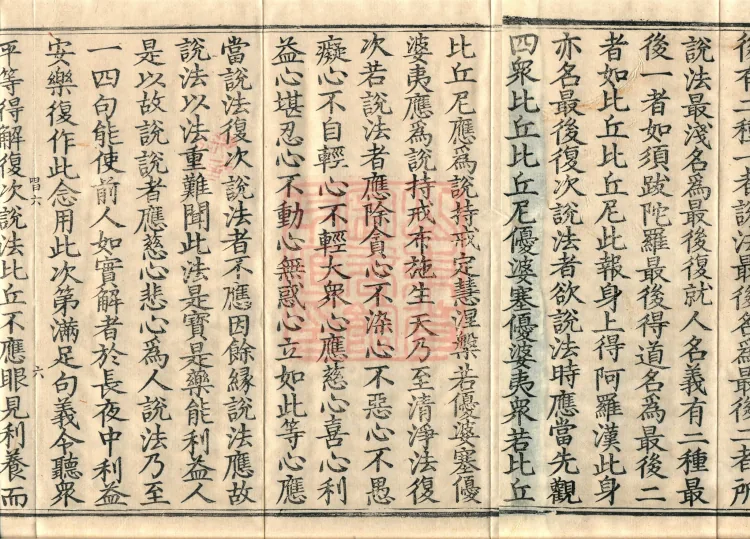 後有二種一者說法最後名爲最後二者所
說法最淺名爲最後復就人名義有二種最
後一者如須跋陀羅最後得道名爲最後二
者如比丘比丘尼此報身上得阿羅漢此身
亦名最後復次說法者欲說法時應當先觀
四衆比丘比丘尼優婆塞優婆夷衆若比丘
比丘尼應爲說持戒定慧涅槃若優婆塞優
婆夷應爲說持戒布施生天乃至清淨法復
次若說法者應除貪心不染心不惡心不愚
癡心不自輕心不輕大衆心應慈心喜心利
益心堪忍心不動心無惑心立如此等心應
當說法復次說法者不應因餘緣說法應故
說法以法重難聞此法是寶是藥能利益人
是以故說說者應慈心悲心爲人說法乃至
一四句能使前人如實解者於長夜中利益
安樂復作此念用此次第滿足句義令聽衆
唱六　六
平等得解復次說法比丘不應眼見利養而